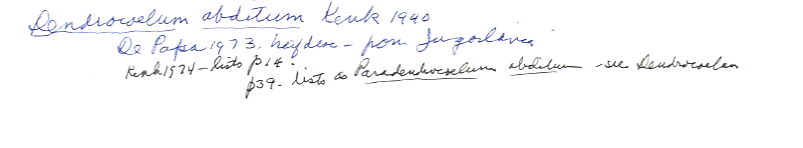 Dendrocoelum abditum Kenk 1940
De Papa 1973. - from Jugoslavia
Kenk 1974 - lists p14.
p39. lists as Paradendrocoelum abditum - see Dendrocoelum